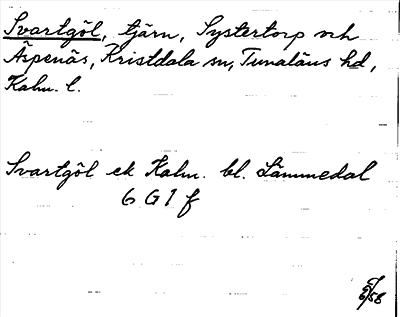 Svartgöl, tjärn, Systertorp och
Äspenäs, Kristdala sn, Tunaläns hd,
Kalm. l.
Svartgöl ek Kalm. bl. Lämmedal
6 G 1 f
6/58